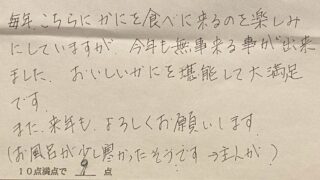 毎年、こちらにかにを食べに来るのを楽しみ
にしていますが、今年も無事来る事が出来
ました。おいしいかにを堪能して大満足
です。
また、来年も、よろしくお願いします。
(お風呂が少し寒かったそうです→主人が)
10点満点で 9 点